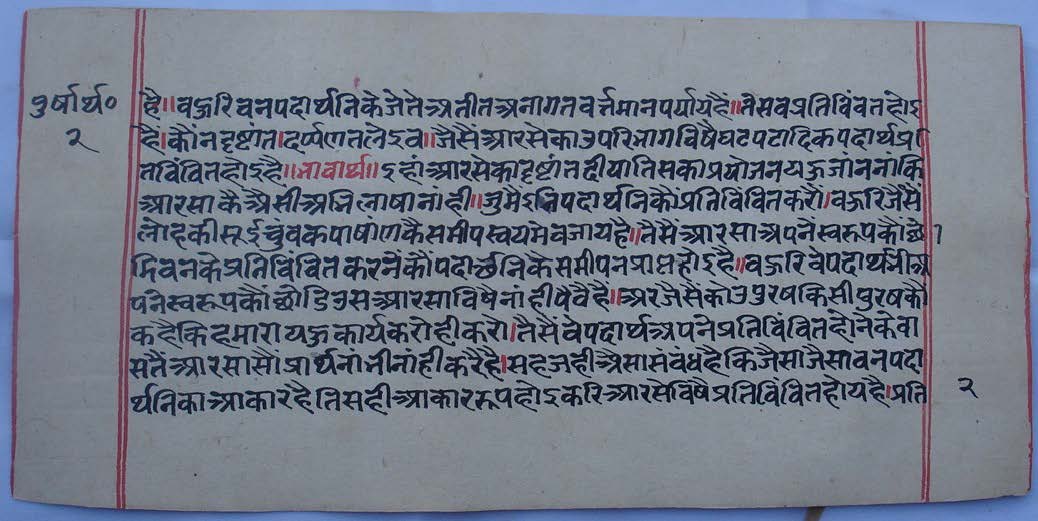 पुर्षार्थ०
२
है॥वहुरिवनपदार्थनिकेजेतेअतीतअनागतवर्त्तमानपर्यायहैं॥तेसवप्रतिविंवतहोइ
है।कौंनदृष्टांत।दर्प्पणतलेइव॥जैसैंआरसेकाउपरिभागविषैघटपटादिकपदार्थप्र
तिविंवितहोइहै॥भावार्थ॥इहांआरसेकादृष्टांतदीयातिसकाप्रयोजनयहुजांननांकि
आरसाकैअैसीअभिलाषानांही॥जुमैंइनिपदार्थनिकौंप्रतिविंवितकरौं।वहुरिजैसैं
लोहकीसूईचुंवकपाषांणकैसमीपस्वयमेवजायहै॥तैसैंआरसाअपनैंस्वरूपकौंछो१
दिवनकेप्रतिविंवितकरनेंकौंपदार्थनिकैसमीपनप्राप्तहोइहै॥वहुरिवेपदार्थभीअ
पनेस्वरूपकौंछोडिउसआरसाविषैनांहीपैवैहै॥अरजैसैंकोउपुरषकिसीपुरषकौं
कहैकिहमारायहुकार्यकरोहीकरो।तैसैंवेपदार्थअपनेप्रतिविंवितहोनेकेवा
सतैंआरसासौंप्रार्थनांभीनांहीकरैहै।सहजहीअैसासंवंधहैकिजैसाजैसावनपदा
र्थनिकाआकारहैतिसहीआकाररूपहोइकरिआरसेविषैप्रतिविंवितहोयहै।प्रति
२